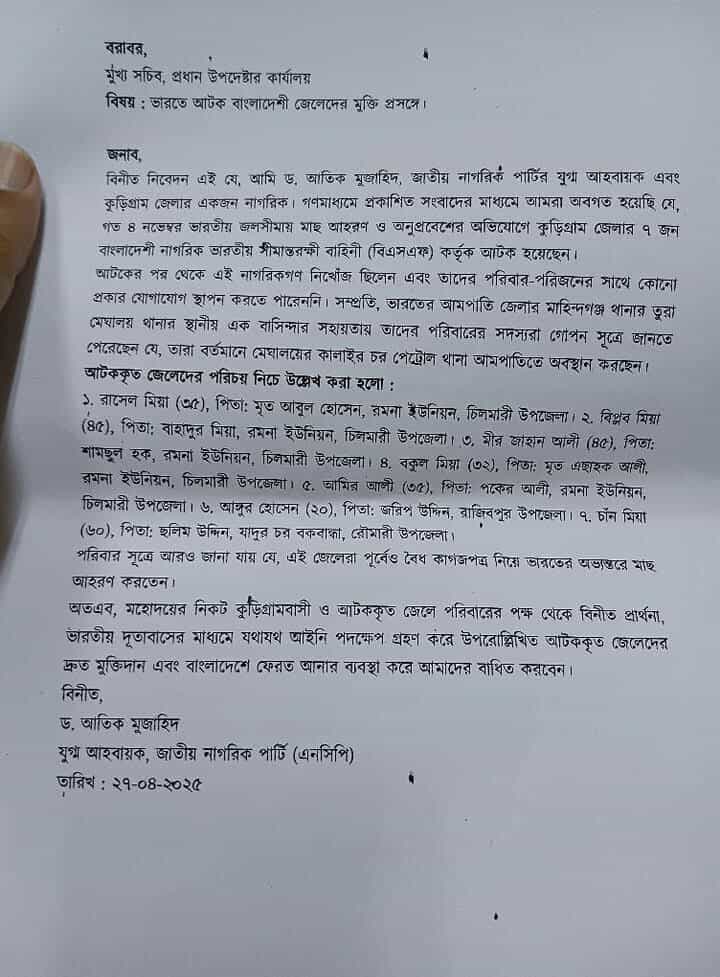 বরাবর,
মুখ্য সচিব, প্রধান উপদেষ্টার কার্যালয়
বিষয় : ভারতে আটক বাংলাদেশী জেলেদের মুক্তি প্রসঙ্গে।
জনাব,
বিনীত নিবেদন এই যে, আমি ড. আতিক মুজাহিদ, জাতীয় নাগরিক পার্টির যুগ্ম আহবায়ক এবং
কুড়িগ্রাম জেলার একজন নাগরিক। গণমাধ্যমে প্রকাশিত সংবাদের মাধ্যমে আমরা অবগত হয়েছি যে,
গত ৪ নভেম্বর ভারতীয় জলসীমায় মাছ আহরণ ও অনুপ্রবেশের অভিযোগে কুড়িগ্রাম জেলার ৭ জন
বাংলাদেশী নাগরিক ভারতীয় সীমান্তরক্ষী বাহিনী (বিএসএফ) কর্তৃক আটক হয়েছেন।
আটকের পর থেকে এই নাগরিকগণ নিখোঁজ ছিলেন এবং তাদের পরিবার-পরিজনের সাথে কোনো
প্রকার যোগাযোগ স্থাপন করতে পারেননি। সম্প্রতি, ভারতের আমপাতি জেলার মাহিন্দগঞ্জ থানার তুরা
মেঘালয় থানার স্থানীয় এক বাসিন্দার সহায়তায় তাদের পরিবারের সদস্যরা গোপন সূত্রে জানতে
পেরেছেন যে, তারা বর্তমানে মেঘালয়ের কালাইর চর পেট্রোল থানা আমপাতিতে অবস্থান করছেন।
আটককৃত জেলেদের পরিচয় নিচে উল্লেখ করা হলো :
১. রাসেল মিয়া (৩৫), পিতা: মৃত আবুল হোসেন, রমনা ইউনিয়ন, চিলমারী উপজেলা। ২. বিপ্লব মিয়া
(৪৫), পিতা: বাহাদুর মিয়া, রমনা ইউনিয়ন, চিলমারী উপজেলা। ৩. মীর জাহান আলী (৪৫), পিতা:
শামছুল হক, রমনা ইউনিয়ন, চিলমারী উপজেলা। ৪. বকুল মিয়া (৩২), পিতা: মৃত এছাহক আলী,
রমনা ইউনিয়ন, চিলমারী উপজেলা। ৫. আমির আলী (৩৫), পিতা: পকের আলী, রমনা ইউনিয়ন,
চিলমারী উপজেলা। ৬. আঙ্গুর হোসেন (২০), পিতা: জরিপ উদ্দিন, রাজিবপুর উপজেলা। ৭. চাঁন মিয়া
(৬০), পিতা: ছলিম উদ্দিন, যাদুর চর বকবান্ধা, রৌমারী উপজেলা।
পরিবার সূত্রে আরও জানা যায় যে, এই জেলেরা পূর্বেও বৈধ কাগজপত্র নিয়ে ভারতের অভ্যন্তরে মাছ
আহরণ করতেন।
অতএব, মহোদয়ের নিকট কুড়িগ্রামবাসী ও আটককৃত জেলে পরিবারের পক্ষ থেকে বিনীত প্রার্থনা,
ভারতীয় দূতাবাসের মাধ্যমে যথাযথ আইনি পদক্ষেপ গ্রহণ করে উপরোল্লিখিত আটককৃত জেলেদের
দ্রুত মুক্তিদান এবং বাংলাদেশে ফেরত আনার ব্যবস্থা করে আমাদের বাধিত করবেন।
বিনীত,
ড. আতিক মুজাহিদ
যুগ্ম আহবায়ক, জাতীয় নাগরিক পার্টি (এনসিপি)
তারিখ : ২৭-০৪-২০২৫